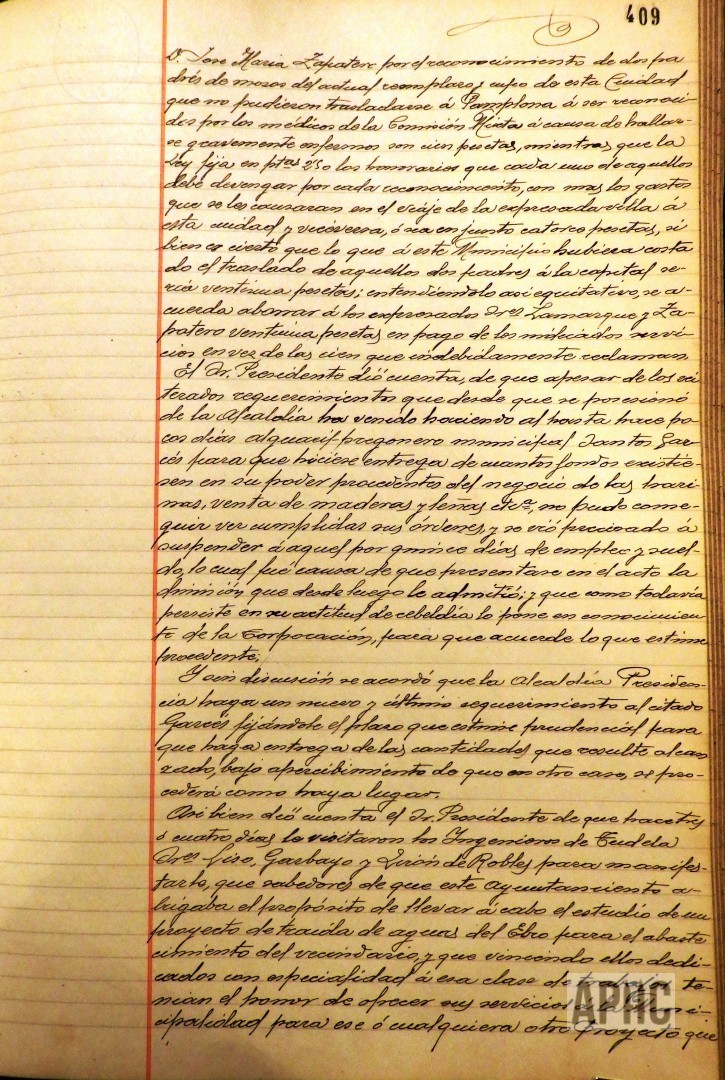 409
D. Jose Maria Zapatero por el reconocimiento de dos pa-
drés de mozos del actual reemplazo y cupo de esta Ciudad
que no pudieron trasladarse á Pamplona á ser reconoci-
dos por los médicos de la Comisión Mixta á causa de hallar-
se gravemente enfermos son cien pesetas, mientras que la
Ley fija en ptas 2'50 los honorarios que cada uno de aquellos
debe devengar por cada reconocimiento, con mas los gastos
que se les causaran en el viaje de la expresada villa á
esta ciudad y viceversa, ó sea en junto catorce pesetas, si
bien es cierto que lo que á este Municipio hubiera costa
do el traslado de aquellos dos padres á la capital se-
ria ventiuna pesetas; entendiendolo asi equitativo, se a-
cuerda abonar á los expresados Sres Lamarque y Za-
patero ventiuna pesetas en pago de los iniciados servi-
cios en vez de las cien que indebidamente reclaman.
El Sr. Presidente dió cuenta, de que apesar de los rei
terados requerimientos que desde que se posesionó
de la Alcaldía ha venido haciendo al hasta hace po-
cos días alguacil pregonero municipal Santos Gar-
cés para que hiciese entrega de cuantos fondos existie-
sen en su poder procedentes del negocio de las hari-
nas, venta de maderas y leñas etca, no pudo conse-
guir ver cumplidas sus órdenes, y se vió precisado á
suspender á aquel por quince días de empleo y suel-
do, lo cual fué causa de que presentase en el acto la
dimisión que desde luego le admitió; y que como todavia
persiste en su actitud de rebeldía lo pone en conocimien-
to de la Corporación, para que acuerde lo que estime
procedente.
Y sin discusión se acordó que la Alcaldía Presiden-
cia haga un nuevo y último requerimiento al citado
Garcés fijándole el plazo que estime prudencial para
que haga entrega de las cantidades que resulte alcan-
zado, bajo apercibimiento de que en otro caso, se pro-
cederá como haya lugar.
Asi bien dió cuenta el Sr. Presidente de que hace tres
ó cuatro días le visitaron los Ingenieros de Tudela
Sres Liso, Garbayo y de Robles para manifes-
tarle, que sabedores de que este Ayuntamiento a-
brigaba el propósito de llevar á cabo el estudio de un
proyecto de traida de aguas del Ebro para el abaste
cimiento del vecindario, y que viniendo ellos dedi-
cados con especialidad á esa clase de te-
nian el honor de ofrecer sus servicios
cipalidad para ese ó cualquiera otro proyecto que
APAC